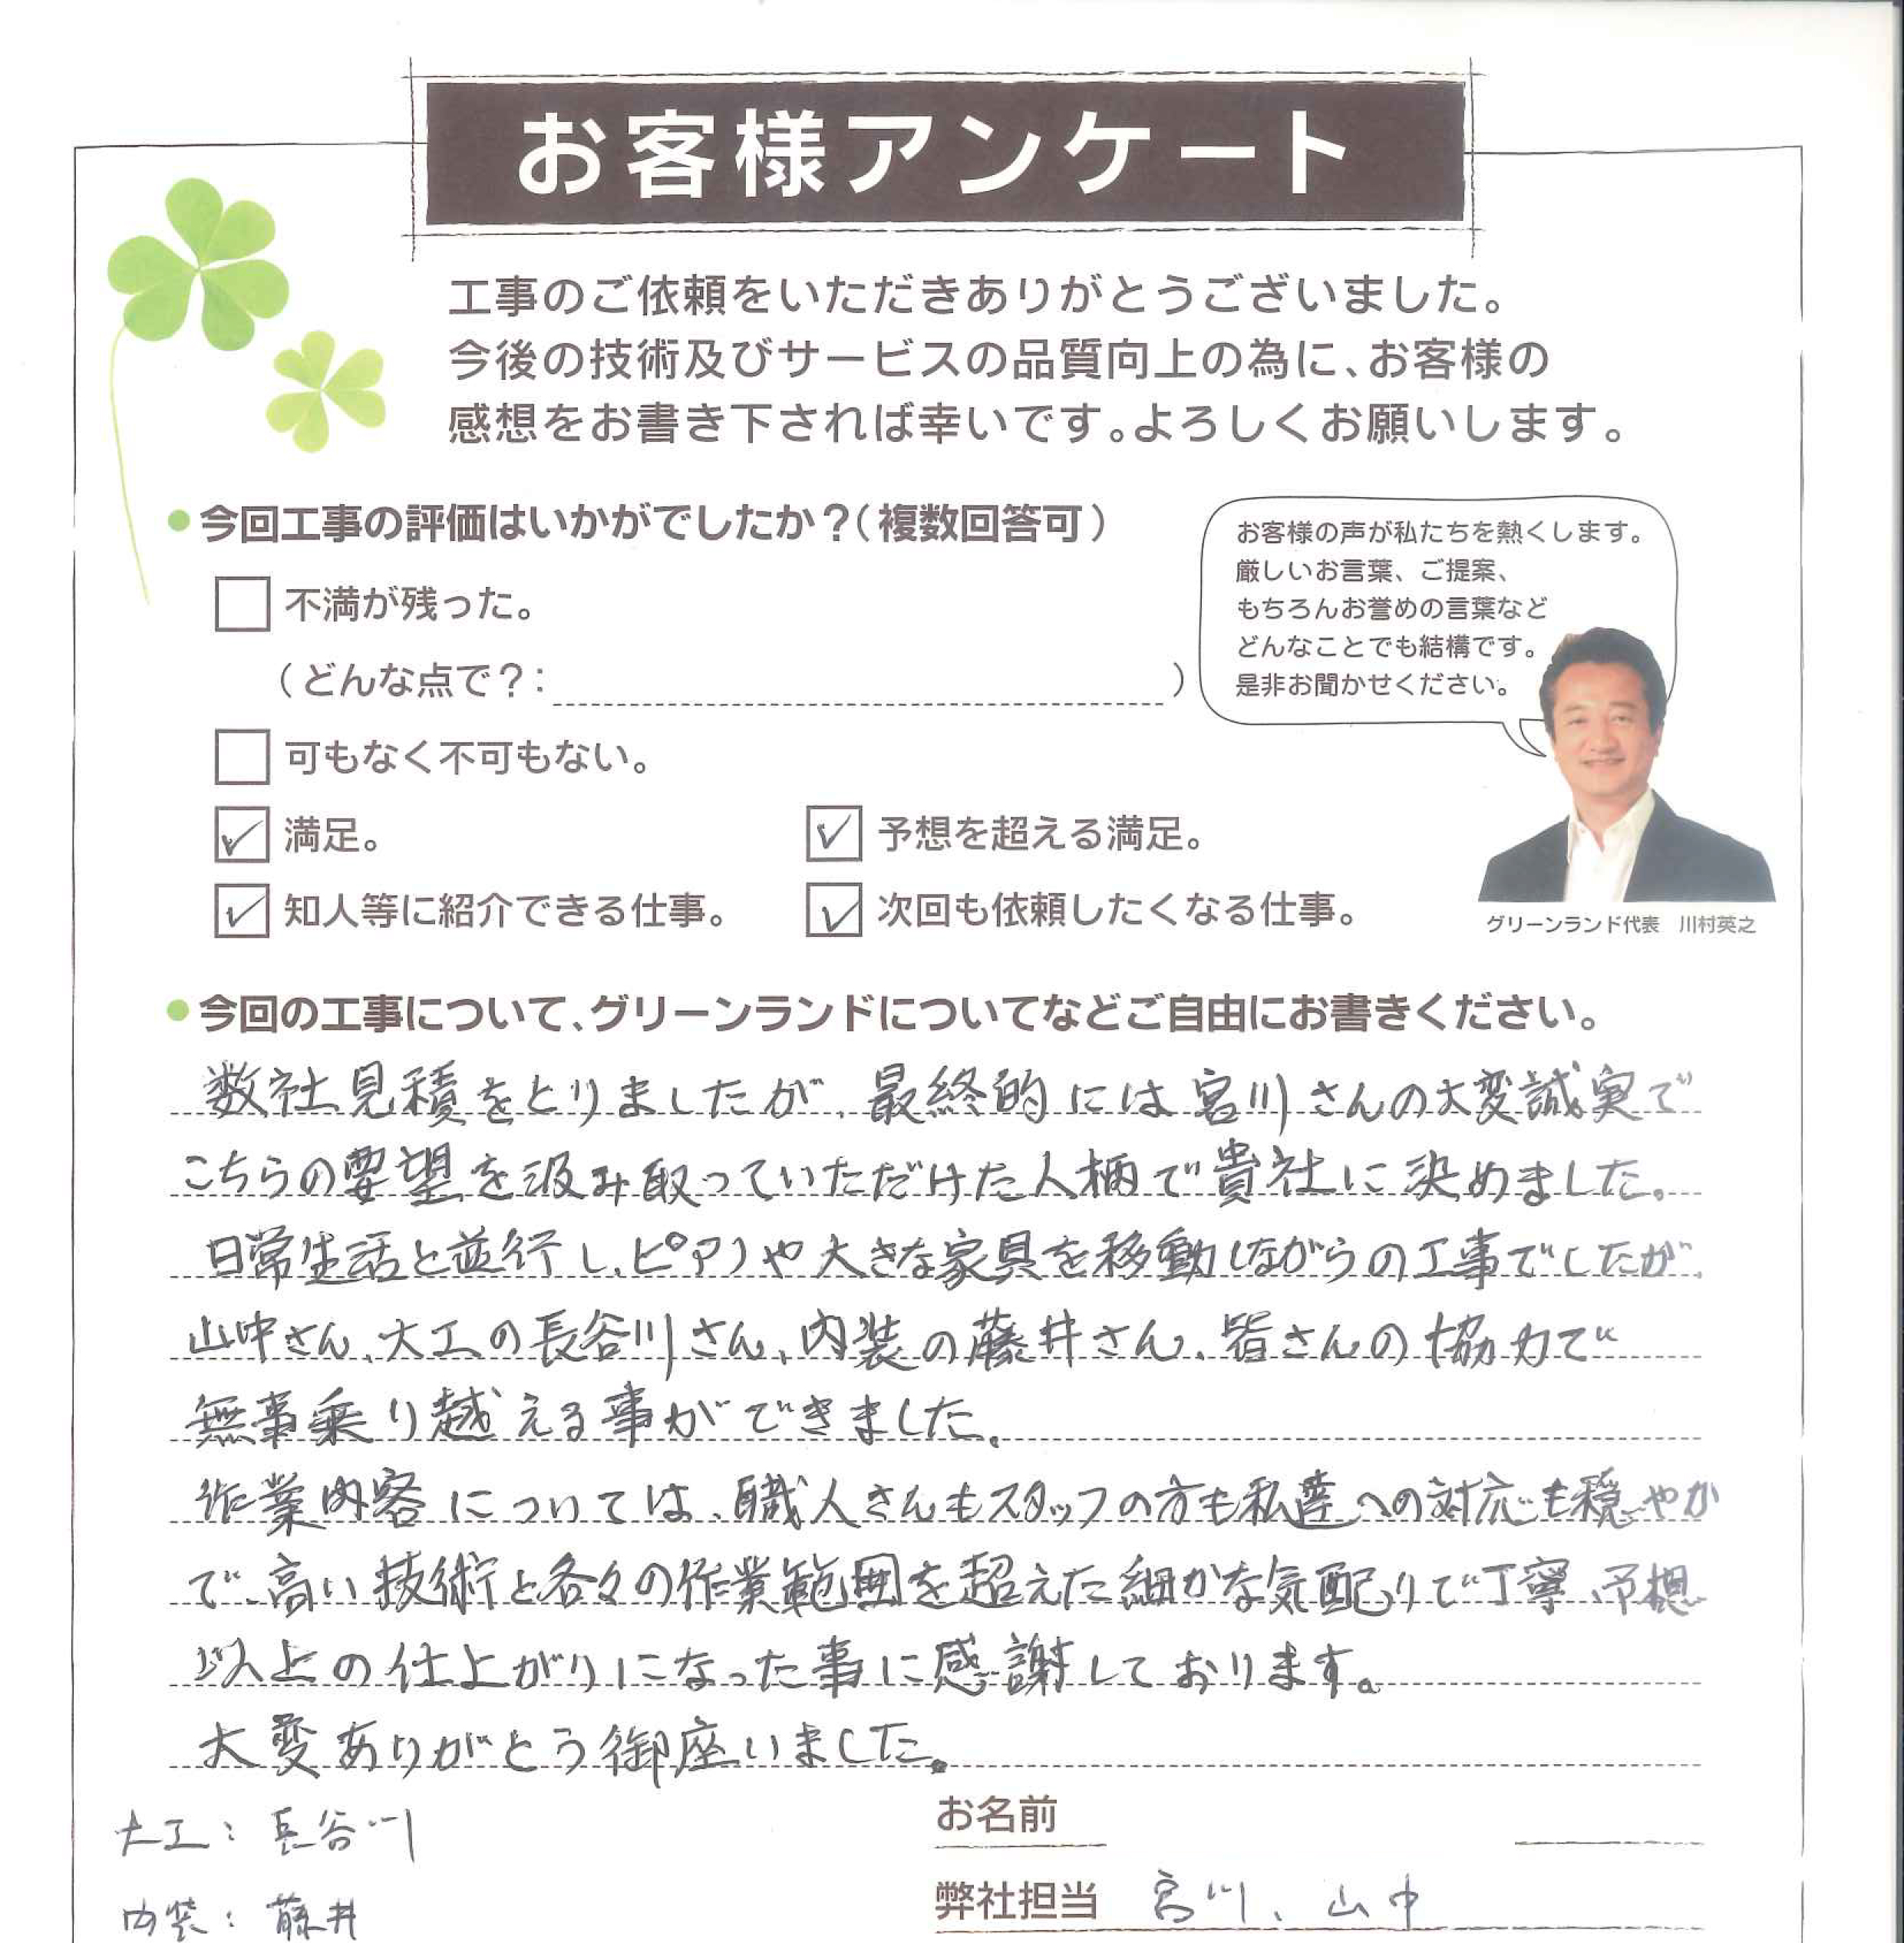 お客様アンケート
工事のご依頼をいただきありがとうございました。
今後の技術及びサービスの品質向上の為に、お客様の
感想をお書き下されば幸いです。よろしくお願いします。
今回工事の評価はいかがでしたか？（複数回答可）
不満が残った。
（どんな点で？：　　　）
可もなく不可もない。
満足。
予想を超える満足。
知人等に紹介できる仕事。
次回も依頼したくなる仕事。
お客様の声が私たちを熱くします。
厳しいお言葉、ご提案、
もちろんお誉めの言葉など
どんなことでも結構です。
是非お聞かせください。
グリーンランド代表　川村英之
今回の工事について、グリーンランドについてなどご自由にお書きください。
数社見積をとりましたが、最終的には宮川さんの大変誠実で
こちらの要望を汲み取っていただけた人柄で貴社に染めました。
日常生活と並行し、ピアノや大きな家具を移動しながらの工事でしたが、
山中さん、大工の長谷川さん、内装の藤井さん、皆さんの協力で
無事乗り越える事ができました。
作業内容については、職人さんもスタッフの方も私達への対応も穏やか
で、高い技術と各々の作業範囲を超えた細かな気配りで丁寧、予想
以上の仕上がりになった事に感謝しております。
大変ありがとう御座いました。
大工：長谷川
内装：藤井
お名前
弊社担当　宮川、山中